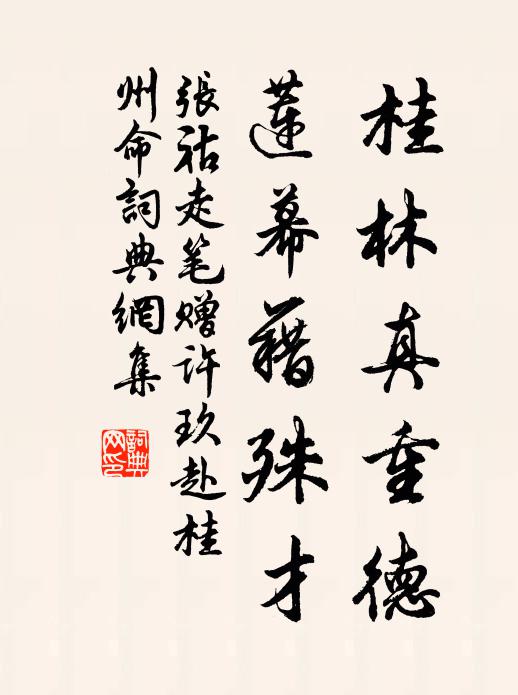 桂林真重德
蓮幕藉殊才
張祜走笔赠许玖赴桂
州命詞典網集
詞典
网印